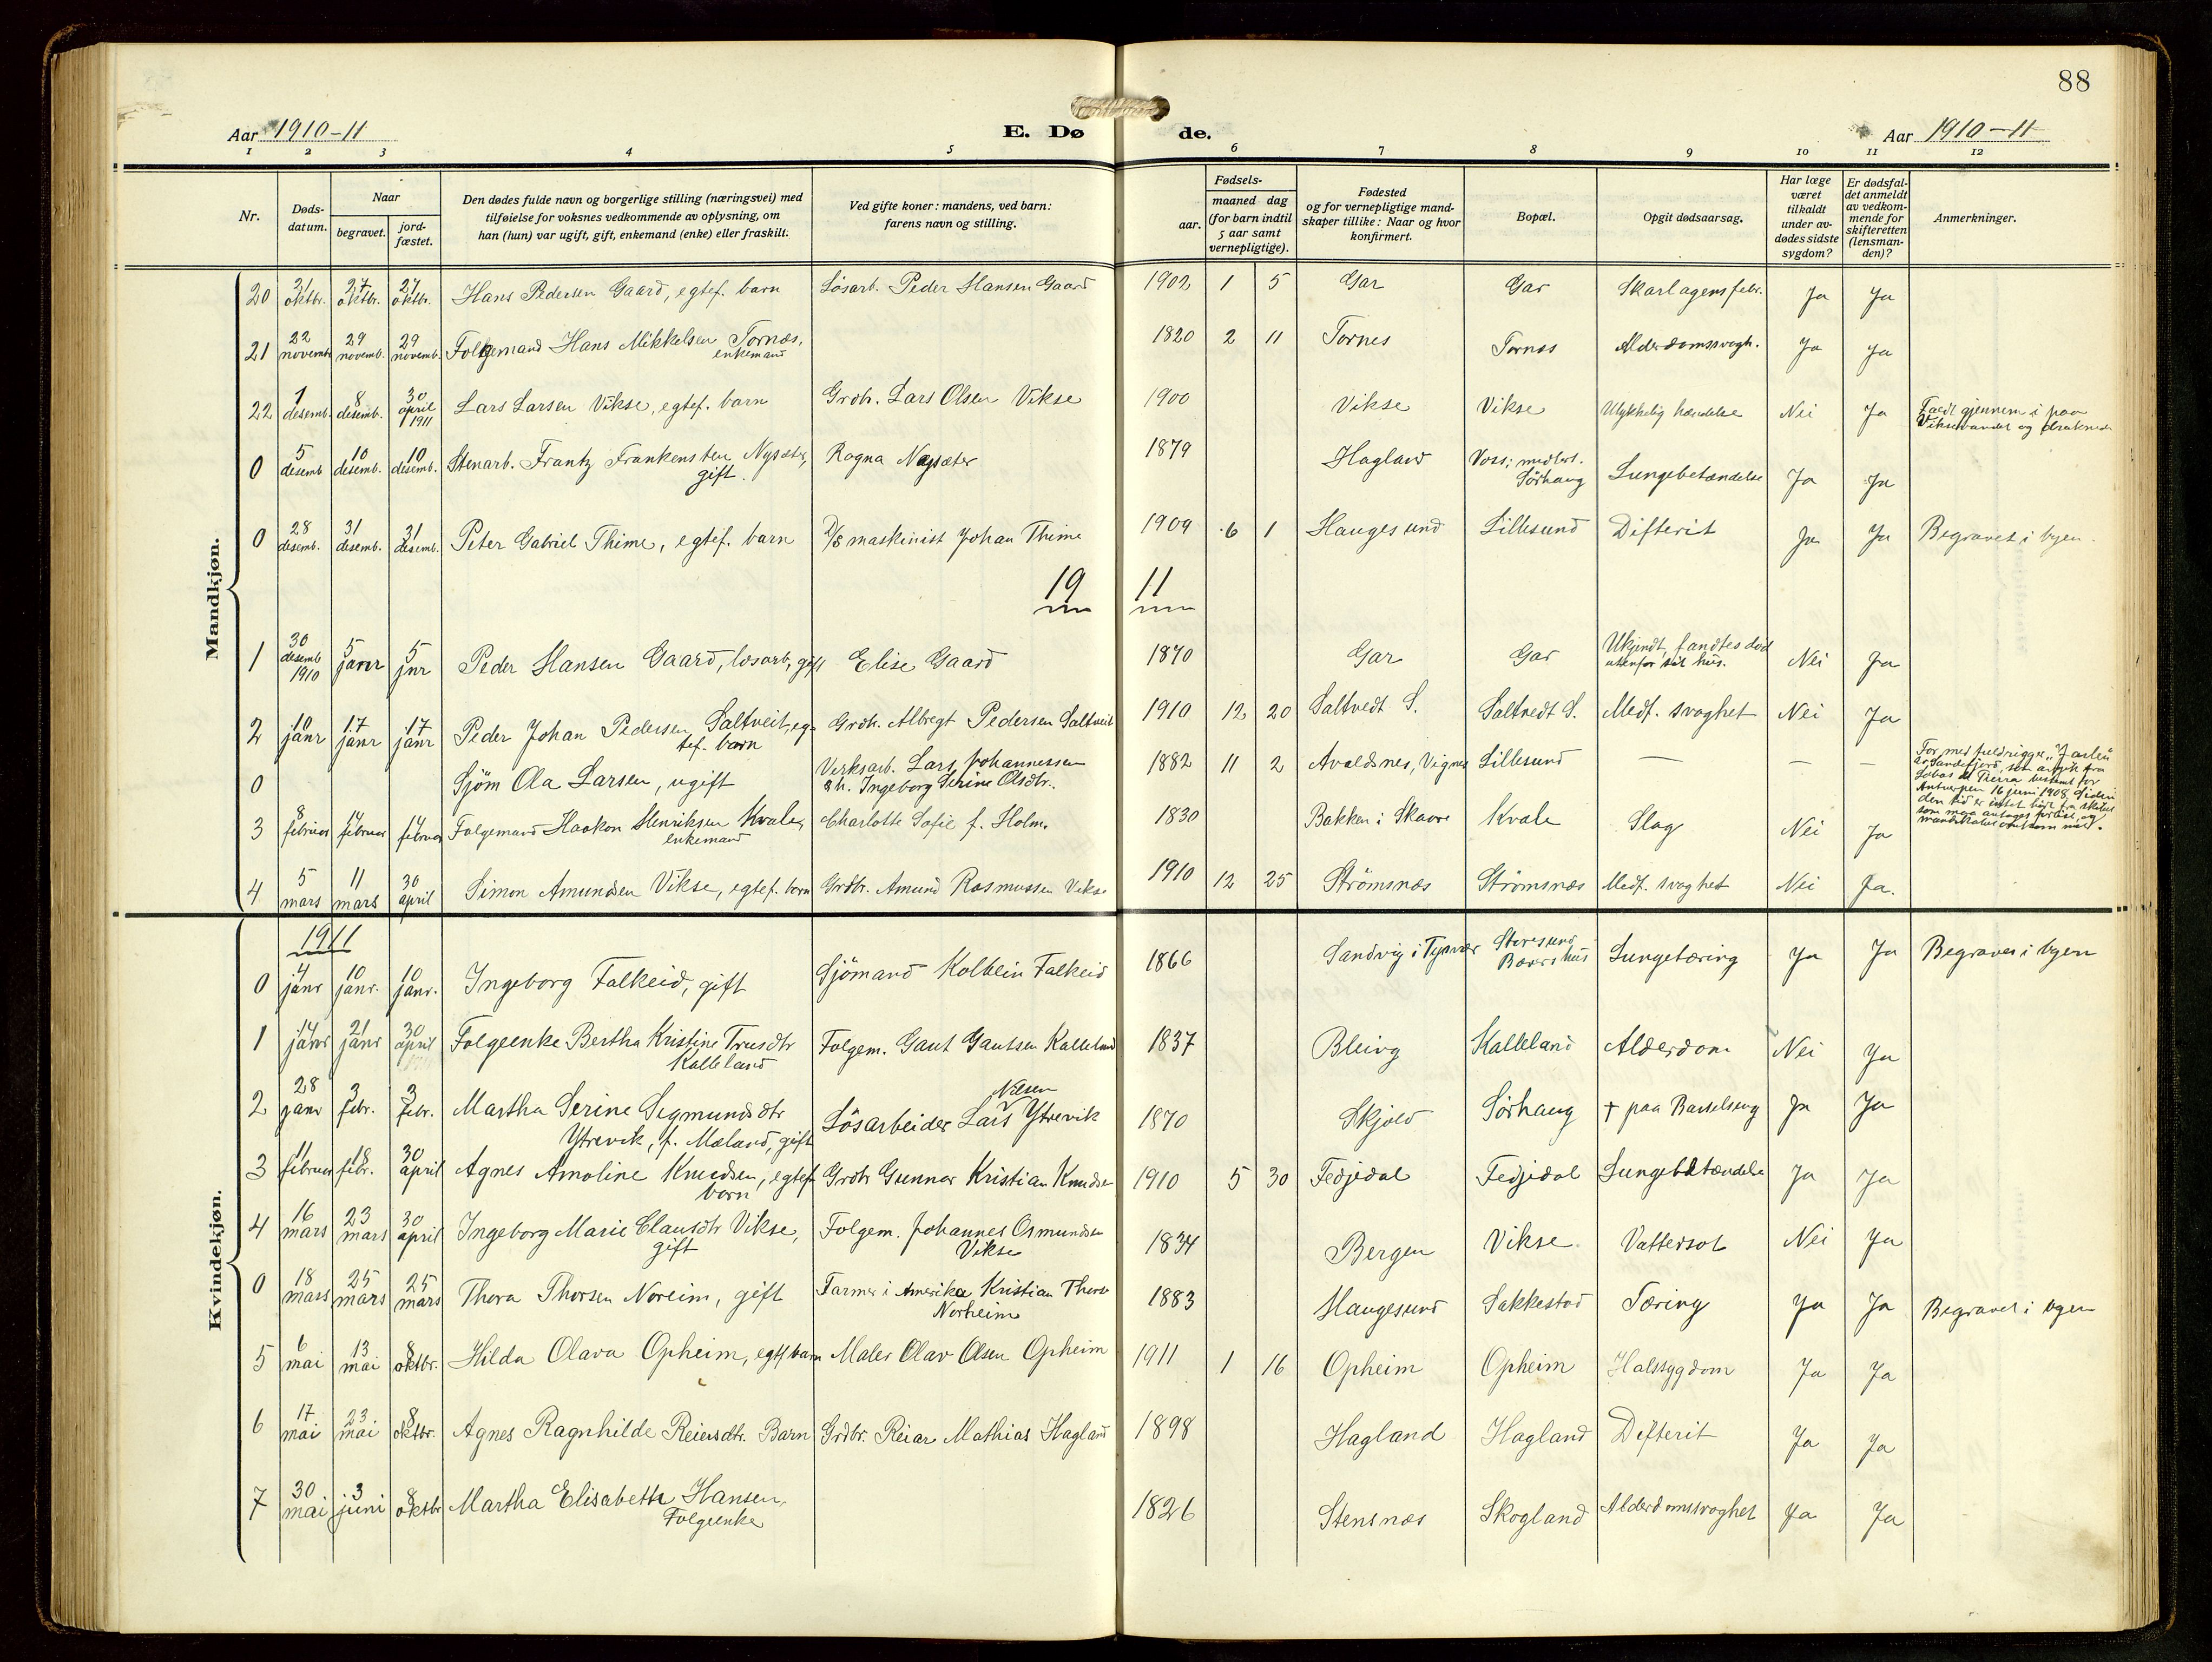 88
Aar 1910-11
E. Dø
de.
Aar 1910-11
1 2 3 4 5 6 7 8 9 10 11 12
Nr.
Døds-
datum.
Naar
begravet.
jord-
fæstet.
Den dødes fulde navn og borgerlige stilling (næringsvei) med
tilføielse for voksnes vedkommende av oplysning, om
han (hun) var ugift, gift, enkemand (enke) eller fraskilt.
Ved gifte koner: mandens, ved barn:
farens navn og stilling.
Fødsels-
aar.
maaned dag
(for barn indtil
5 aar samt
vernepligtige).
Fødested
og for vernepligtige mand-
skaper tillike: Naar og hvor
konfirmert.
Bopæl.
Opgit dødsaarsag.
Har læge
været
tilkaldt
under av-
dødes sidste
sygdom?
Er dødsfal-
det anmeldt
av vedkom-
mende for
skifteretten
(lensman-
den)?
Anmerkninger.
Mandkjøn.
20 21 oktbr. 27 oktbr. 27 oktbr. Hans Pedersen Gaard, egtef. barn Lösarb. Peder Hansen Gaard 1902 1 5 Gar Gar Skarlagensfebr. Ja Ja
21 22 novemb 29 novemb. 29 novemb. Folgemand Hans Mikkelsen Tornæs,
enkemand
1820 2 11 Tornes Tornæs Alderdomssvagh. Ja Ja
22 1 desemb. 8 desemb. 30 april 1911 Lars Larsen Vikse, egtef. barn Grdb. Lars Olsen Vikse 1900 Vikse Vikse Ulykkelig hændelse Nei Ja Faldt gjennem i paa
Viksevandet og druknede
0 5 desemb 10 desemb. 10 desemb. Stenarb. Frantz Frankensten Nysæter,
gift.
Ragna Nysæter 1879 Hagland Voss; midlert.
Sørhaug
Lungebetændelse Ja Ja
0 28 desemb. 31 desemb. 31 desemb. Peter Gabriel Thime, egtef. barn D/S maskinist Johan Thime 1909 6 1 Haugesund Lillesund Difterit Ja Ja Begravet i byen.
19 11
1 30 desemb 1910 5 janr 5 jnr Peder Hansen Gaard, løsarb, gift Elise Gaard 1870 Gar Gar Ukjendt, fandtes død
utenfor sit hus.
Nei Ja
2 10 janr 17 janr 17 janr Peder Johan Pedersen Saltveit, eg-
tef. barn
Grdb. Albregt Pedersen Saltveit 1910 12 20 Saltvedt S. Saltvedt S. Medf. svaghet Nei Ja
0 Sjöm Ola Larsen, ugift Verksarb. Lars Johannessen
& h. Ingeborg Serine Olsdtr.
1882 11 2 Avaldsnes, Vignes Lillesund — — —
For med fuldrigger "Jarlen"
av Sandefjord, som avgik fra
Antwerpen 16 juni 1908. Siden
den tid er intet hørt fra skibet
som maa antages forlist, og
3 8 februar 14 februar 14 februar Folgemand Haakon Henriksen Kvale,
enkemand
Charlotte Sofie f. Holm. 1830 Bakken i Skaare Kvale Slag Nei Ja
4 5 mars 11 mars 30 april Simon Amundsen Vikse, egtef. barn Grdbr. Amund Rasmussen Vikse 1910 12 25 Strömsnæs Strömsnæs Medf. svaghet Nei Ja.
Kvindekjøn.
1911
0 4 janr 10 janr. 10 janr. Ingeborg Falkeid, gift Sjömand Kolbein Falkeid 1866 Sandvig i Tysvær Storesund
Lungetæring Ja Ja Begravet i byen
1 14 janr 21 janr 30 april Folgeenke Bertha Kristine Truesdtr
Kalleland
Folgem. Gaut Gautsen Kalleland 1837 Bleivg Kalleland Alderdom Nei Ja
2 28 janr 3 febr. 3 febr. Martha Serine Segmundsdtr
Ytrevik, f. Mæland, gift
Lösarbeider Lars Nilsen Ytrevik 1870 Skjold Sørhaug † paa Barselseng Ja Ja
3 11 februar 18 febr. 30 april Agnes Amoline Knudsen, egtef.
barn
Grdbr Gunnar Kristian Knudsen 1910 5 30 Fedjedal Fedjedal Lungebetændelse Ja Ja
4 16 mars 23 mars 30 april Ingeborg Marie Clausdtr Vikse,
gift
Folgem. Johannes Osmundsen
Vikse
1834 Bergen Vikse Vattersot Nei Ja
0 18 mars 25 mars 25 mars Thora Thorsen Noreim, gift Farmer i Amerika Kristian Thors
Norheim
1883 Haugesund Sakkestad Tæring Ja Ja Begravet i byen
5 6 mai 13 mai 8 oktbr. Hilda Olava Opheim, egtf barn Maler Olav Olsen Opheim 1911 1 16 Opheim Opheim Halssygdom Ja Ja
6 17 mai 23 mai 8 oktbr. Agnes Ragnhilde Reiersdtr. Barn Grdbr. Reiar Mathias Hagland 1898 Hagland Hagland Difterit Ja Ja
7 30 mai 3 juni 8 oktbr Martha Elisabeth Hansen,
Folgeenke
1826 Stensnæs Skogland Alderdomssvaghet Ja Ja